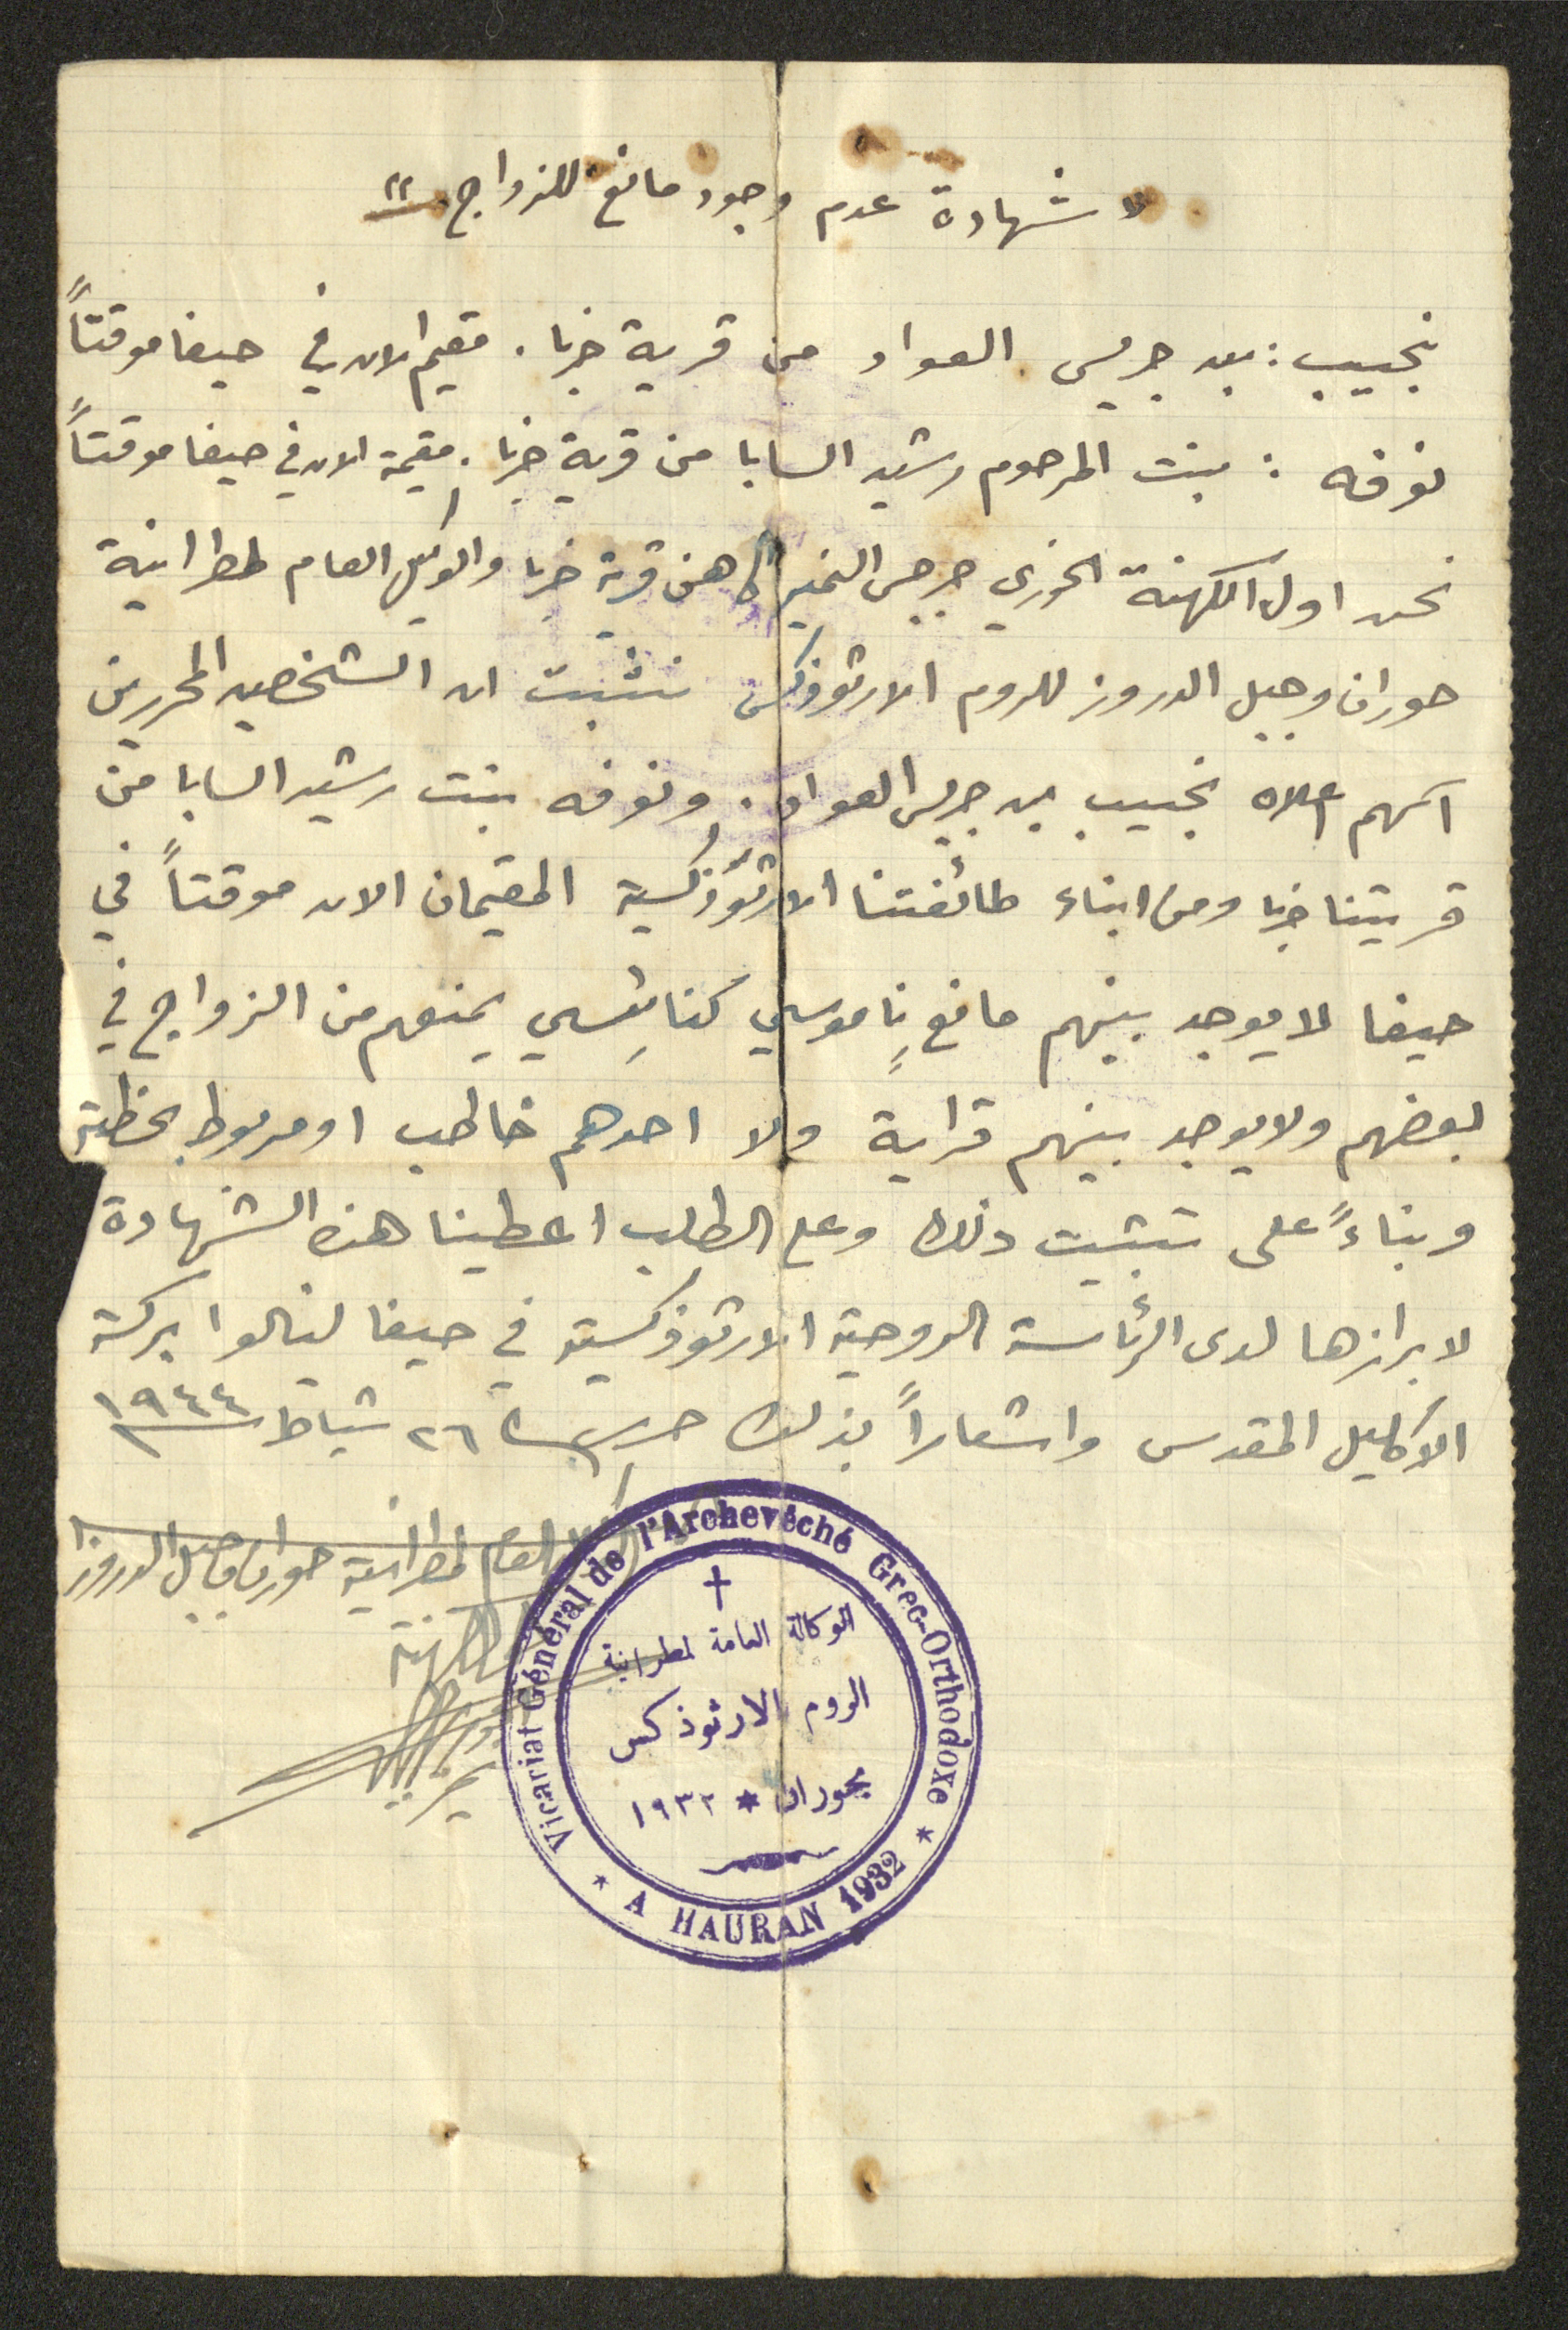 " شهادة عدم وجود مانع للزواج "
نجيب : بن جريس العواد من قرية خربا . مقيم الان في حيفا موقتاً
نوفه : بنت المرحوم رشيد السابا من قرية خربا . مقيمة الان في حيفا موقتاً
نحن اول الكهنة الخوري جرجس النمير كاهن قرية خربا والوكيل العام لمطرانية
حوران وجبل الدروز للروم الارثوذكس نثبت ان الشخصين المحررين
اسمهم اعلاه نجيب بن جريس العواد . ونوفه بنت رشيد السابا من
قريتنا خربا ومن ابناء طائفتنا الارثوذكسية المقيمان الان موقتاً في
حيفا لا يوجد بينهم مانع ناموسي كنائسي يمنعهم من الزواج في
بعضهم ولا يوجد بينهم قرابة ولا احدهم خاطب او مربوط بخطبة
وبناءً على تثبيت ذلك وعلى الطلب اعطينا هذه الشهادة
لابرازها لدى الرئاسة الروحية الارثوذكسية في حيفا لينالوا بركة
الاكليل المقدس واشعاراً بذلك حرر ٢٦ شباط ١٩٤٤
العام لمطرانية حوران وجبل الدروز
الكهنة
Vicariat Général de l'Archevêché Grec-Orthodoxe
* A HAURAN 1932 *
الوكالة العامة لمطرانية
الروم الارثوذكس
بحوران * ١٩٣٢